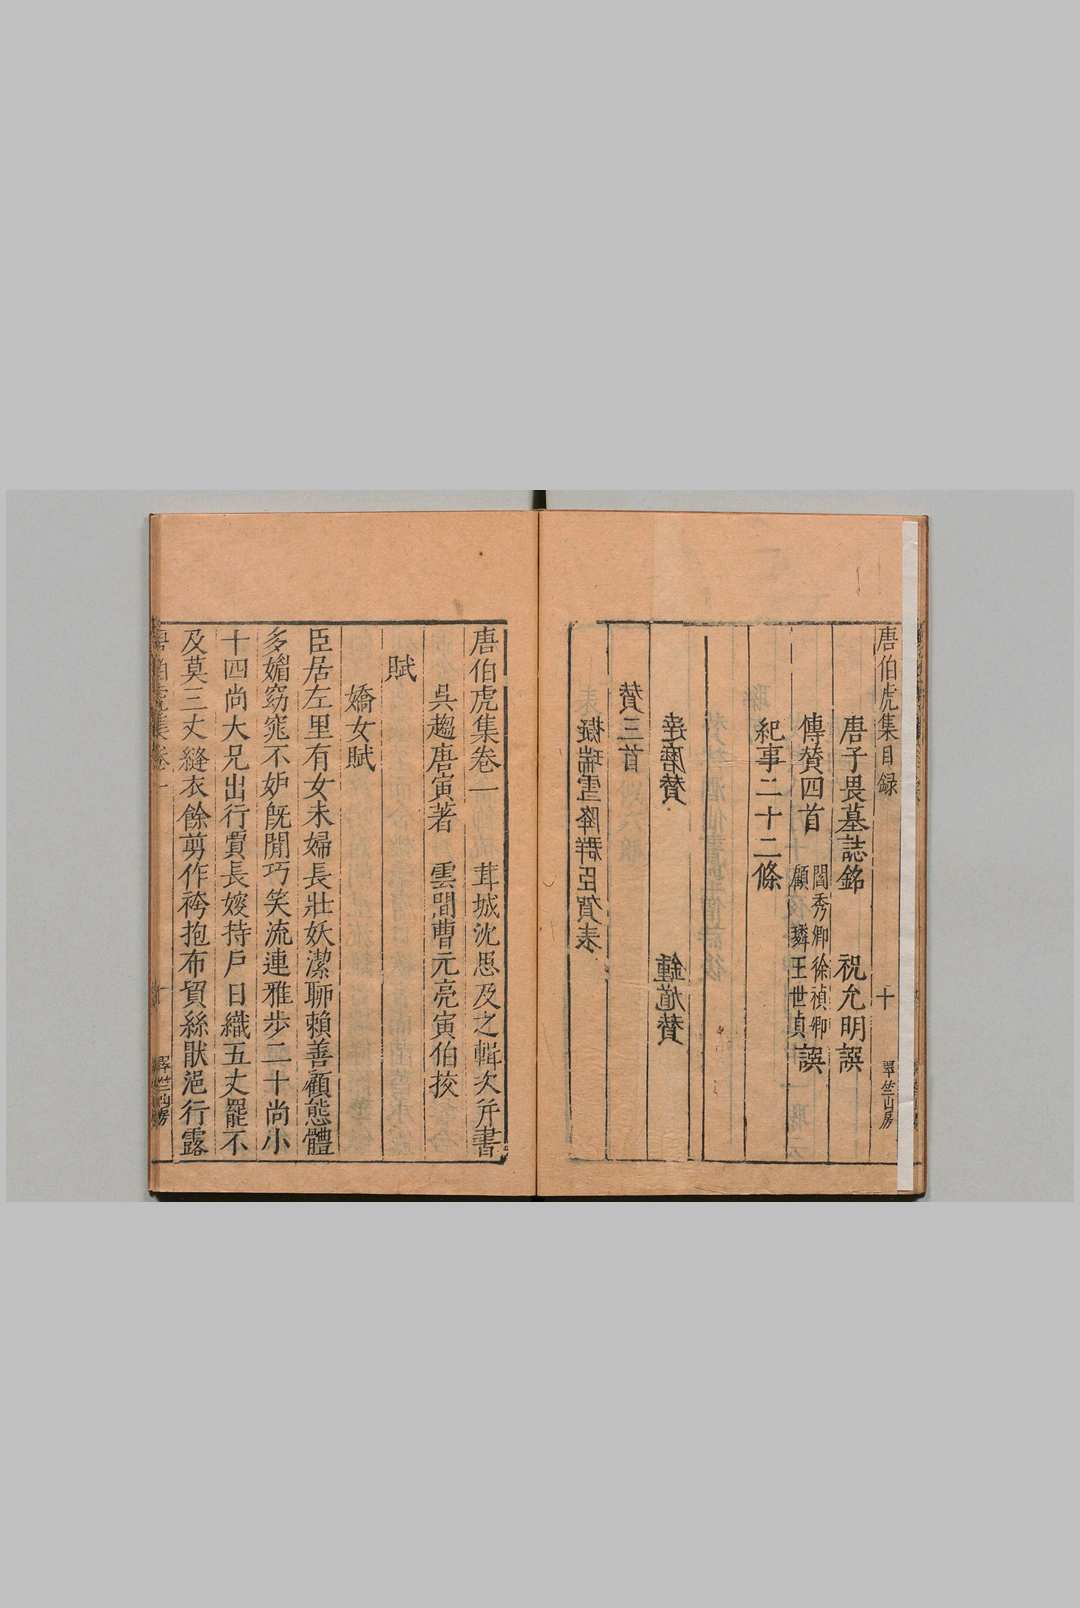 唐伯虎集目錄
十
翠竺山房
唐子畏墓誌銘 祝允明譔
傳贊四首 閻秀卿 徐禎卿 顧璘 王世貞 譔
紀事二十二條
達磨贊 鍾馗贊
贊三首
擬瑞雪降群臣賀表
表
唐伯虎集卷一 茸城沈思及之輯次并書
吳趨唐寅著 雲間曹元亮寅伯挍
賦
嬌女賦
臣居左里有女未婦長壯妖潔聊賴善顧態體
多媚窈窕不妒既閒巧笑流連雅步二十尚小
十四尚大兄出行賈長嫂持戶日織五丈罷不
及莫三丈縫衣餘剪作袴抱布貿絲猒浥行露
唐伯虎集 卷一
一
翠竺山房